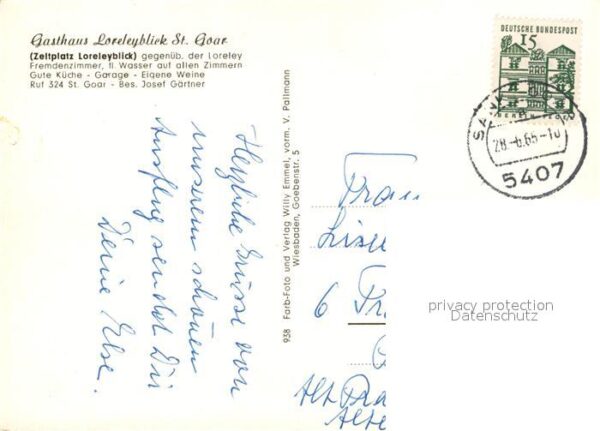 Gasthaus Loreleyblick St. Goar
(Zeltplatz Loreleyblick) gegenüb. der Loreley
Fremdenzimmer, fl. Wasser auf allen Zimmern
Gute Küche - Garage - Eigene Weine
Ruf 324 St. Goar - Bes. Josef Gärtner
Herzliche Grüsse von
unserem schönen
Ausflug sendet Dir
Deine Else.
938 Farb-Foto und Verlag Willy Emmel, vorm. V. Pallmann
Wiesbaden, Goebenstr. 5
DEUTSCHE BUNDESPOST
15
28.-6.65-10
5407
Frau
6
privacy protection
Datenschutz